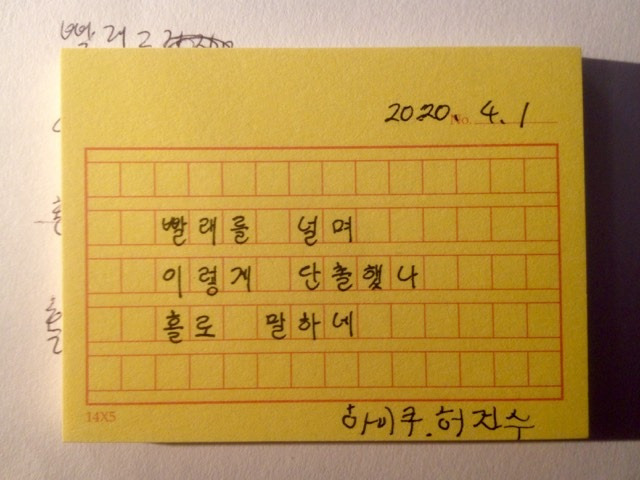 빨래
2020. 4. 1
No.
빨래를 널며
이렇게 단촐했나
홀로 말하네
14X5
하이쿠. 허진수